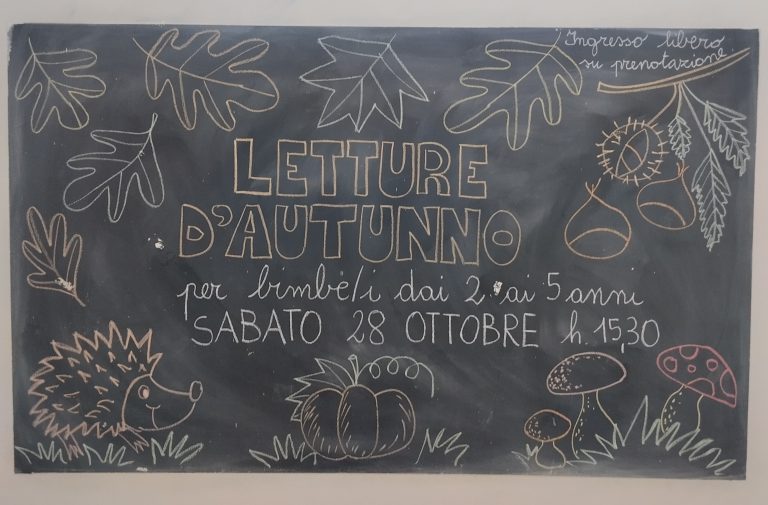 Ingresso libero
su prenotazione
LETTURE
D'AUTUNNO
per bimbe/i dai 2 ai 5 anni
SABATO 28 OTTOBRE h. 15,30